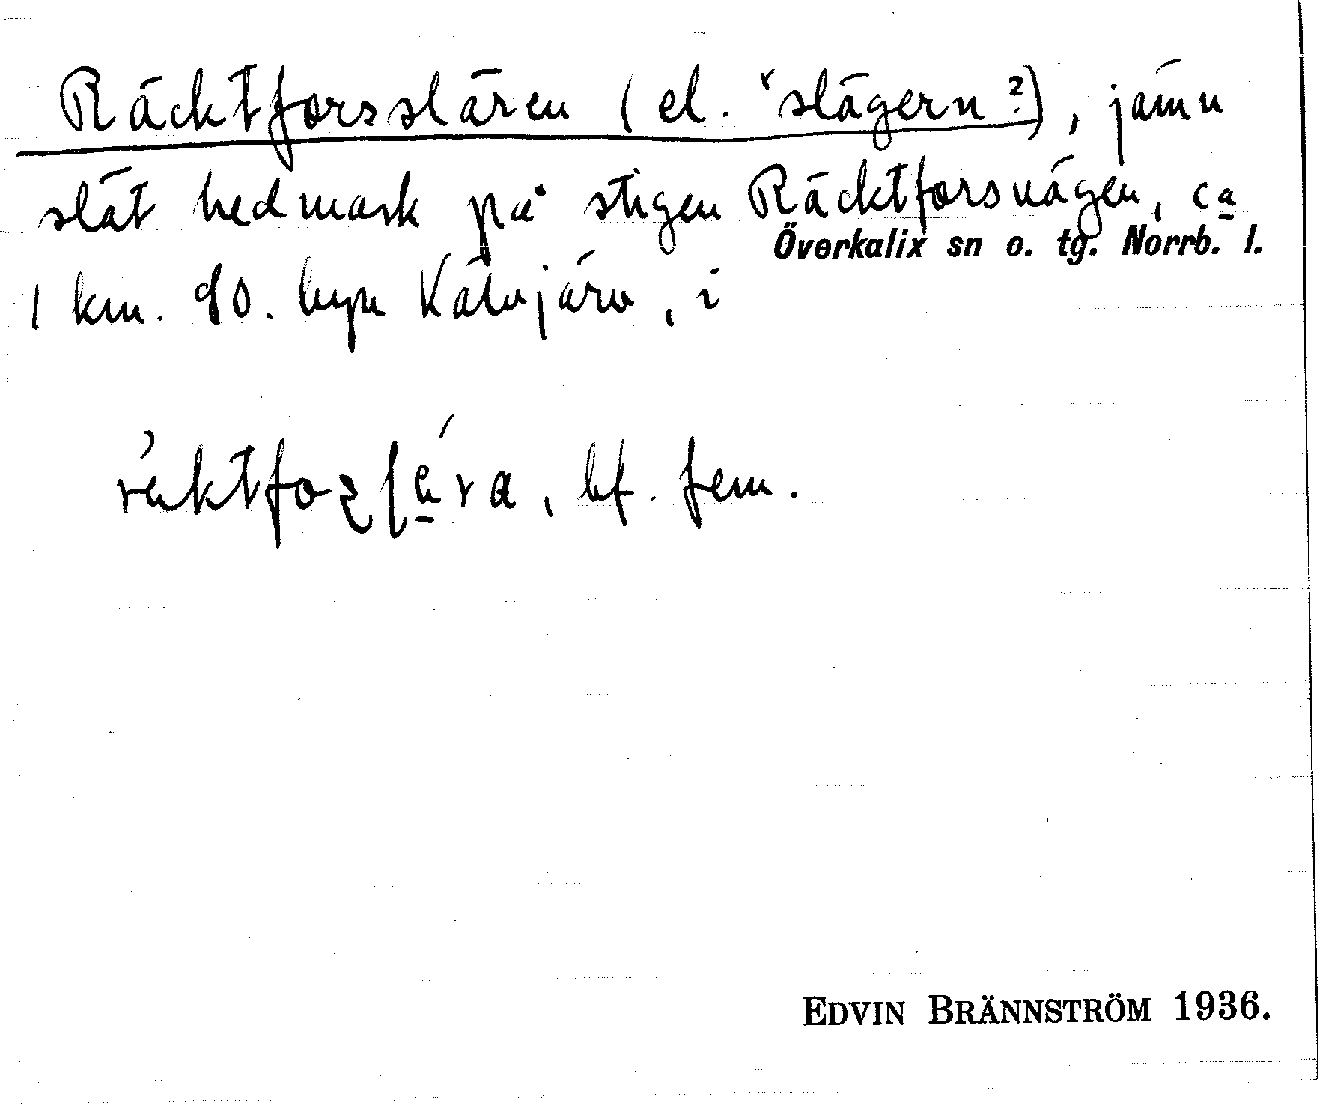 Räcktforsslären (el. "slägern?), jämn
slät hedmark på stigen Räcktforsvägen, ca
Överkalix sn o. tg. Norrb. l.
1 km. SO. byn Kälvjärv, i
bf. fem.
EDVIN BRÄNNSTRÖM 1936.